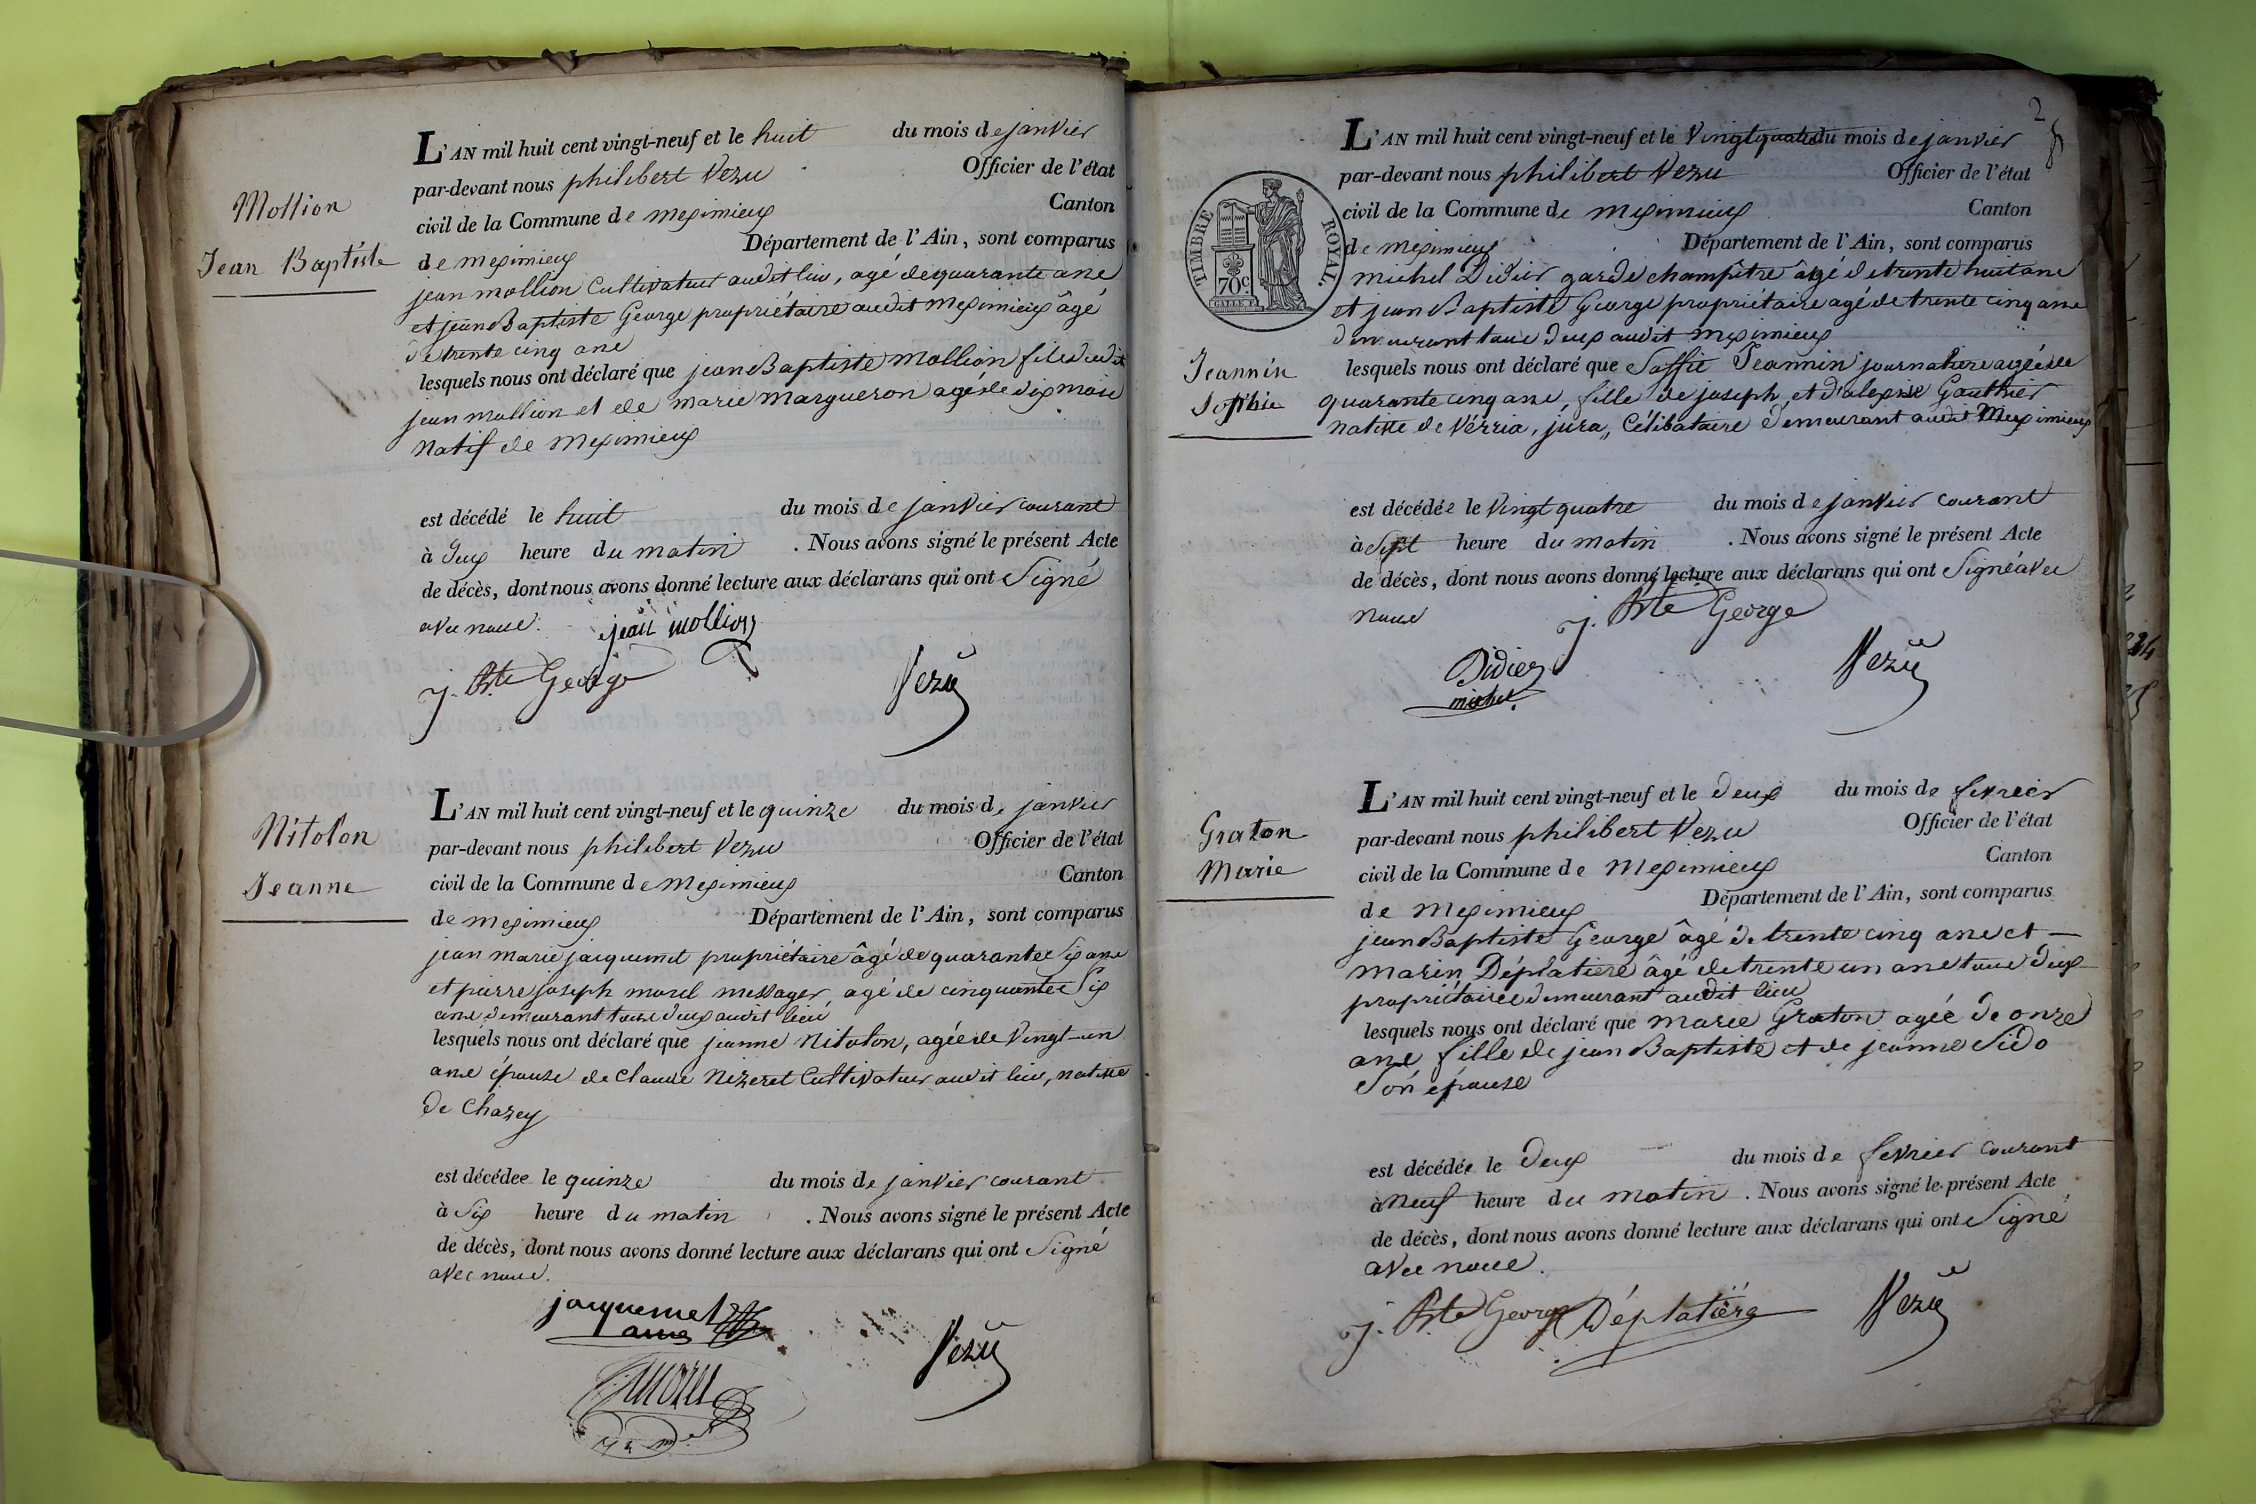 Mollion
Jean Baptiste
L'AN mil huit cent vingt-neuf et le huit du mois de janvier
par-devant nous philibert Vezu Officier de l'état
civil de la Commune de meximieux Canton
de meximieux Département de l'Ain, sont comparus
jean mollion Cultivateur audit lieu, agé de quarante ans
et jean Baptiste George propriétaire audit meximieux âgé
de trente cinq ans
lesquels nous ont déclaré que jean Baptiste Mollion fils dudit
jean mollion et de marie margueron agé de dix mois
natif de meximieux
est décédé le huit du mois de janvier courant
à deux heure du matin . Nous avons signé le présent Acte
de décès, dont nous avons donné lecture aux déclarans qui ont Signé
avec nous.
jean mollion
j. Bte George
Vezu
Nitolon
Jeanne
L'AN mil huit cent vingt-neuf et le quinze du mois de janvier
par-devant nous philibert Vezu Officier de l'état
civil de la Commune de meximieux Canton
de meximieux Département de l'Ain, sont comparus
jean marie jacquemet propriétaire âgé de quarante Six ans
et pierre joseph morel messager, agé de cinquante Six
ans demeurant tous deux audit lieu
lesquels nous ont déclaré que jeanne Nitolon, agée de Vingt-un
ans épouse de Claude Nizeret Cultivateur audit lieu, native
de Chazey
est décédée le quinze du mois de janvier courant
à Six heure du matin . Nous avons signé le présent Acte
de décès, dont nous avons donné lecture aux déclarans qui ont Signé
avec nous.
jacquemet
Vezu
2
TIMBRE ROYAL
70c.
L'AN mil huit cent vingt-neuf et le Vingt quatre du mois de janvier
par-devant nous philibert Vezu Officier de l'état
civil de la Commune de meximieux Canton
de meximieux Département de l'Ain, sont comparus
michel Didier garde champêtre âgé de trente huit ans
et jean Baptiste George propriétaire agé de trente cinq ans
demeurant tous deux audit meximieux
Jeannin
Sophie
lesquels nous ont déclaré que Soffie Jeannin journaliere agée de
quarante cinq ans, fille de joseph et d'alexise Gauthier
native de Vérria, jura, Célibataire demeurant audit Meximieux
est décédée le Vingt quatre du mois de janvier courant
à Sept heure du matin . Nous avons signé le présent Acte
de décès, dont nous avons donné lecture aux déclarans qui ont Signé avec
nous
j. Bte George
Didier
michel
Vezu
Graton
Marie
L'AN mil huit cent vingt-neuf et le deux du mois de fevrier
par-devant nous philibert Vezu Officier de l'état
civil de la Commune de Meximieux Canton
de Meximieux Département de l'Ain, sont comparus
jean Baptiste George âgé de trente cinq ans et
marin Déplatiere âgé de trente un ans tous deux
propriétaires demeurant audit lieu
lesquels nous ont déclaré que marie Graton agée de onze
ans fille de jean Baptiste et de jeanne Sido
Son épouse
est décédée le deux du mois de fevrier courant
à neuf heure du matin . Nous avons signé le présent Acte
de décès, dont nous avons donné lecture aux déclarans qui ont Signé
avec nous.
j. Bte George Déplatière
Vezu